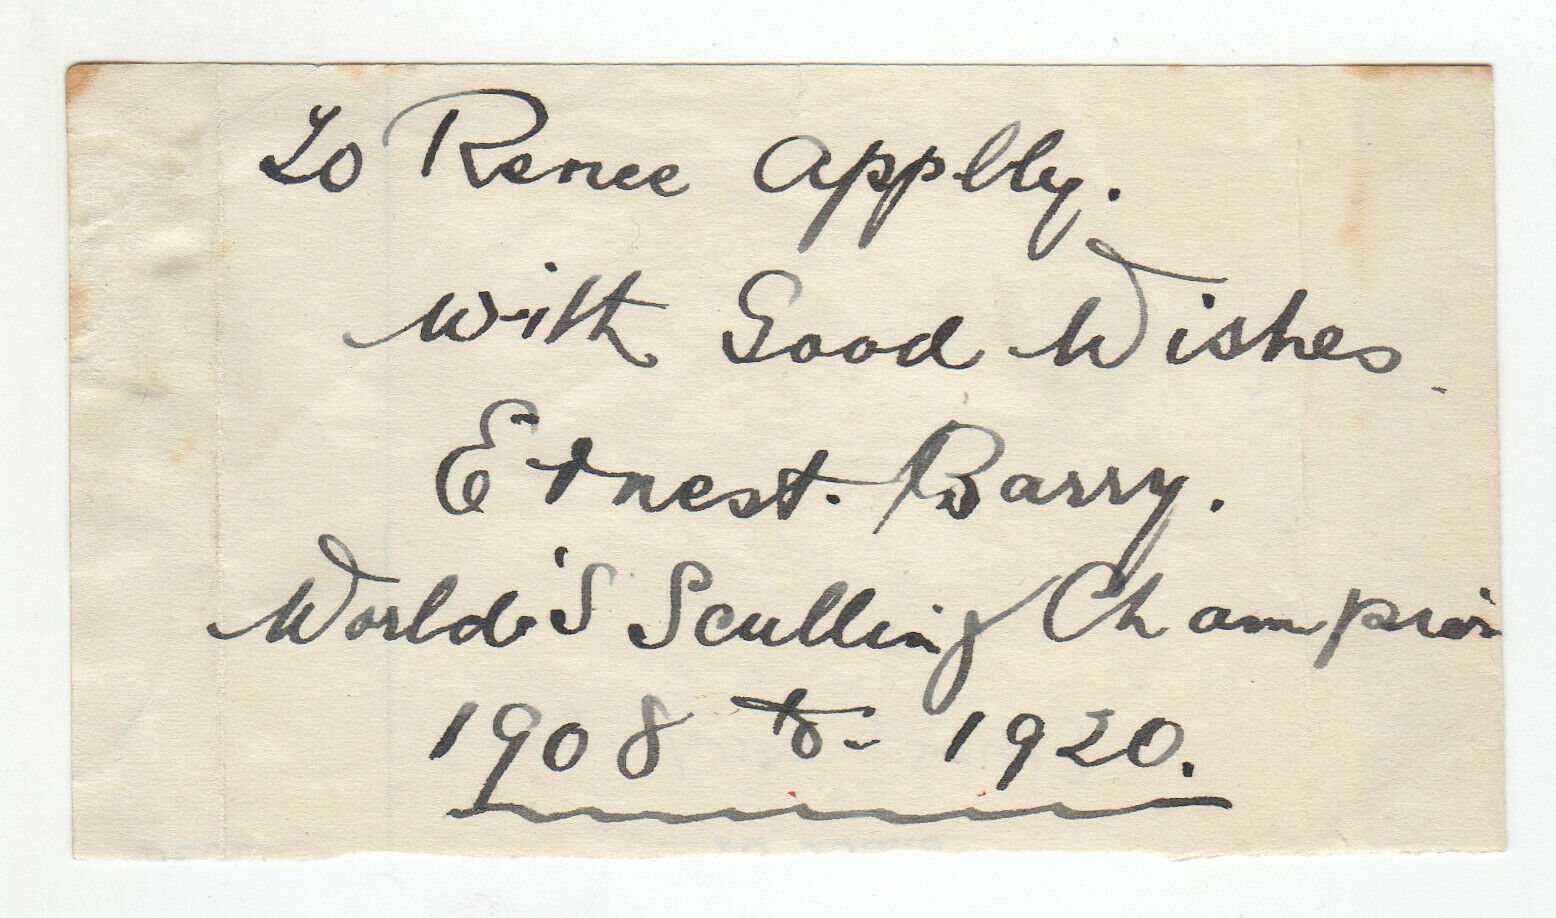 To Renee Applby.
With Good Wishes
Ernest. Barry.
World'S Sculling Champion
1908 to 1920.